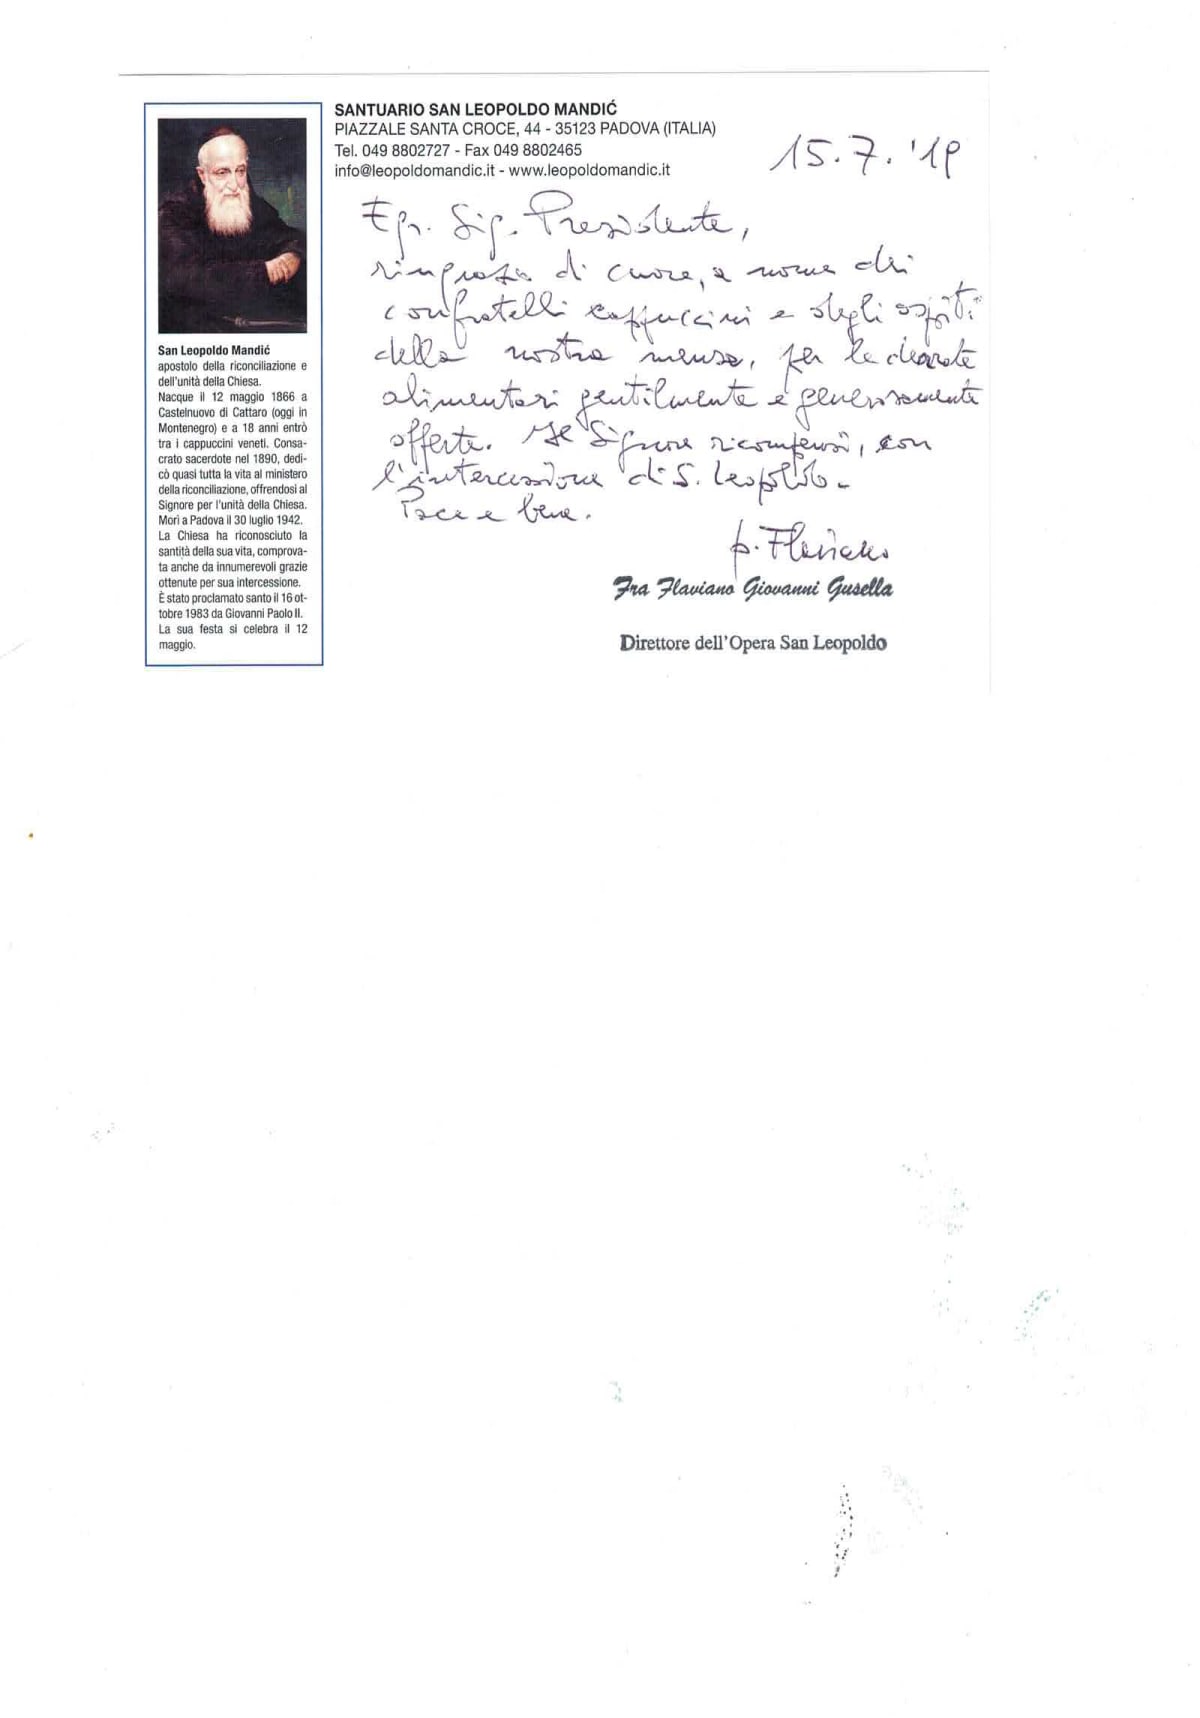 SANTUARIO SAN LEOPOLDO MANDIĆ
PIAZZALE SANTA CROCE, 44 - 35123 PADOVA (ITALIA)
Tel. 049 8802727 - Fax 049 8802465
info@leopoldomandic.it - www.leopoldomandic.it
15.7.'19
Egr. Sig. Presidente,
ringrazio di cuore, a nome dei
confratelli cappuccini e degli ospiti
della nostra mensa, per le derrate
alimentari gentilmente e generosamente
offerte. Il Signore ricompensi, con
l'intercessione di S. Leopoldo.
Pace e bene.
p. Flaviano
Fra Flaviano Giovanni Gusella
Direttore dell'Opera San Leopoldo
San Leopoldo Mandić
apostolo della riconciliazione e
dell'unità della Chiesa.
Nacque il 12 maggio 1866 a
Castelnuovo di Cattaro (oggi in
Montenegro) e a 18 anni entrò
tra i cappuccini veneti. Consa-
crato sacerdote nel 1890, dedi-
cò quasi tutta la vita al ministero
della riconciliazione, offrendosi al
Signore per l'unità della Chiesa.
Morì a Padova il 30 luglio 1942.
La Chiesa ha riconosciuto la
santità della sua vita, comprova-
ta anche da innumerevoli grazie
ottenute per sua intercessione.
È stato proclamato santo il 16 ot-
tobre 1983 da Giovanni Paolo II.
La sua festa si celebra il 12
maggio.